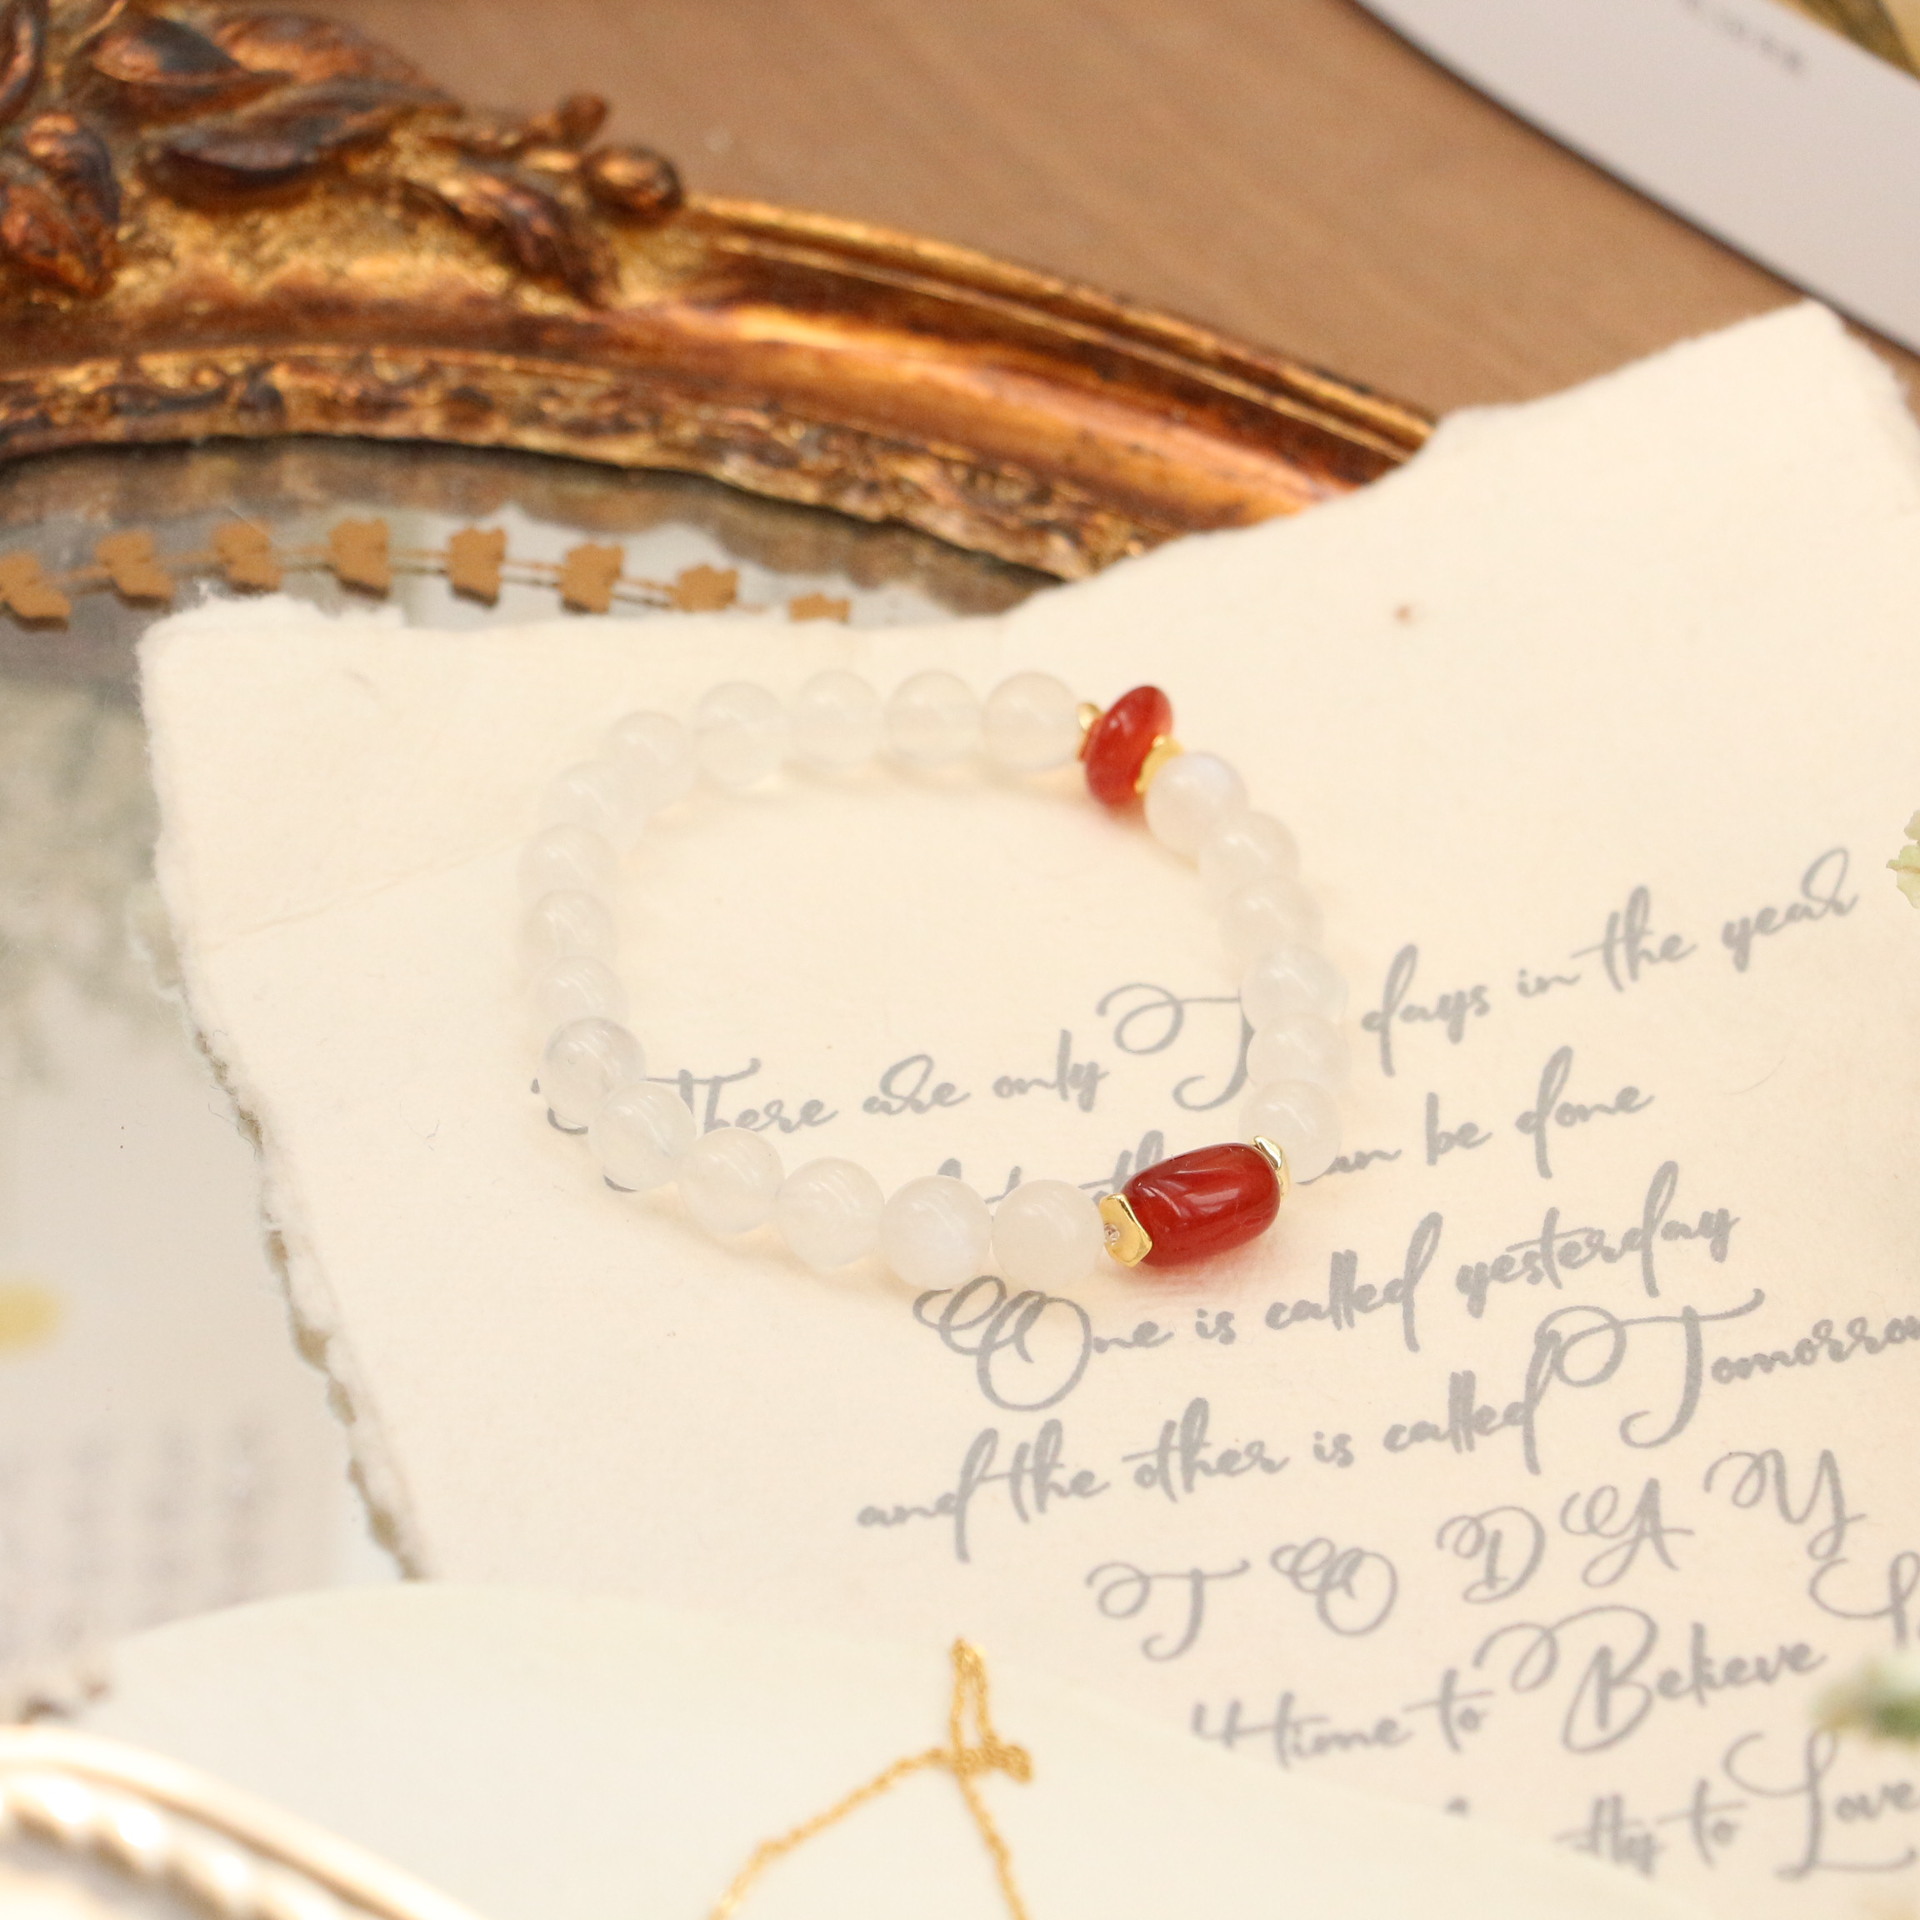 There are only T days in the year
be done
One is called yesterday
and the other is called Tomorrow
TODAY
time to Believe
to Love